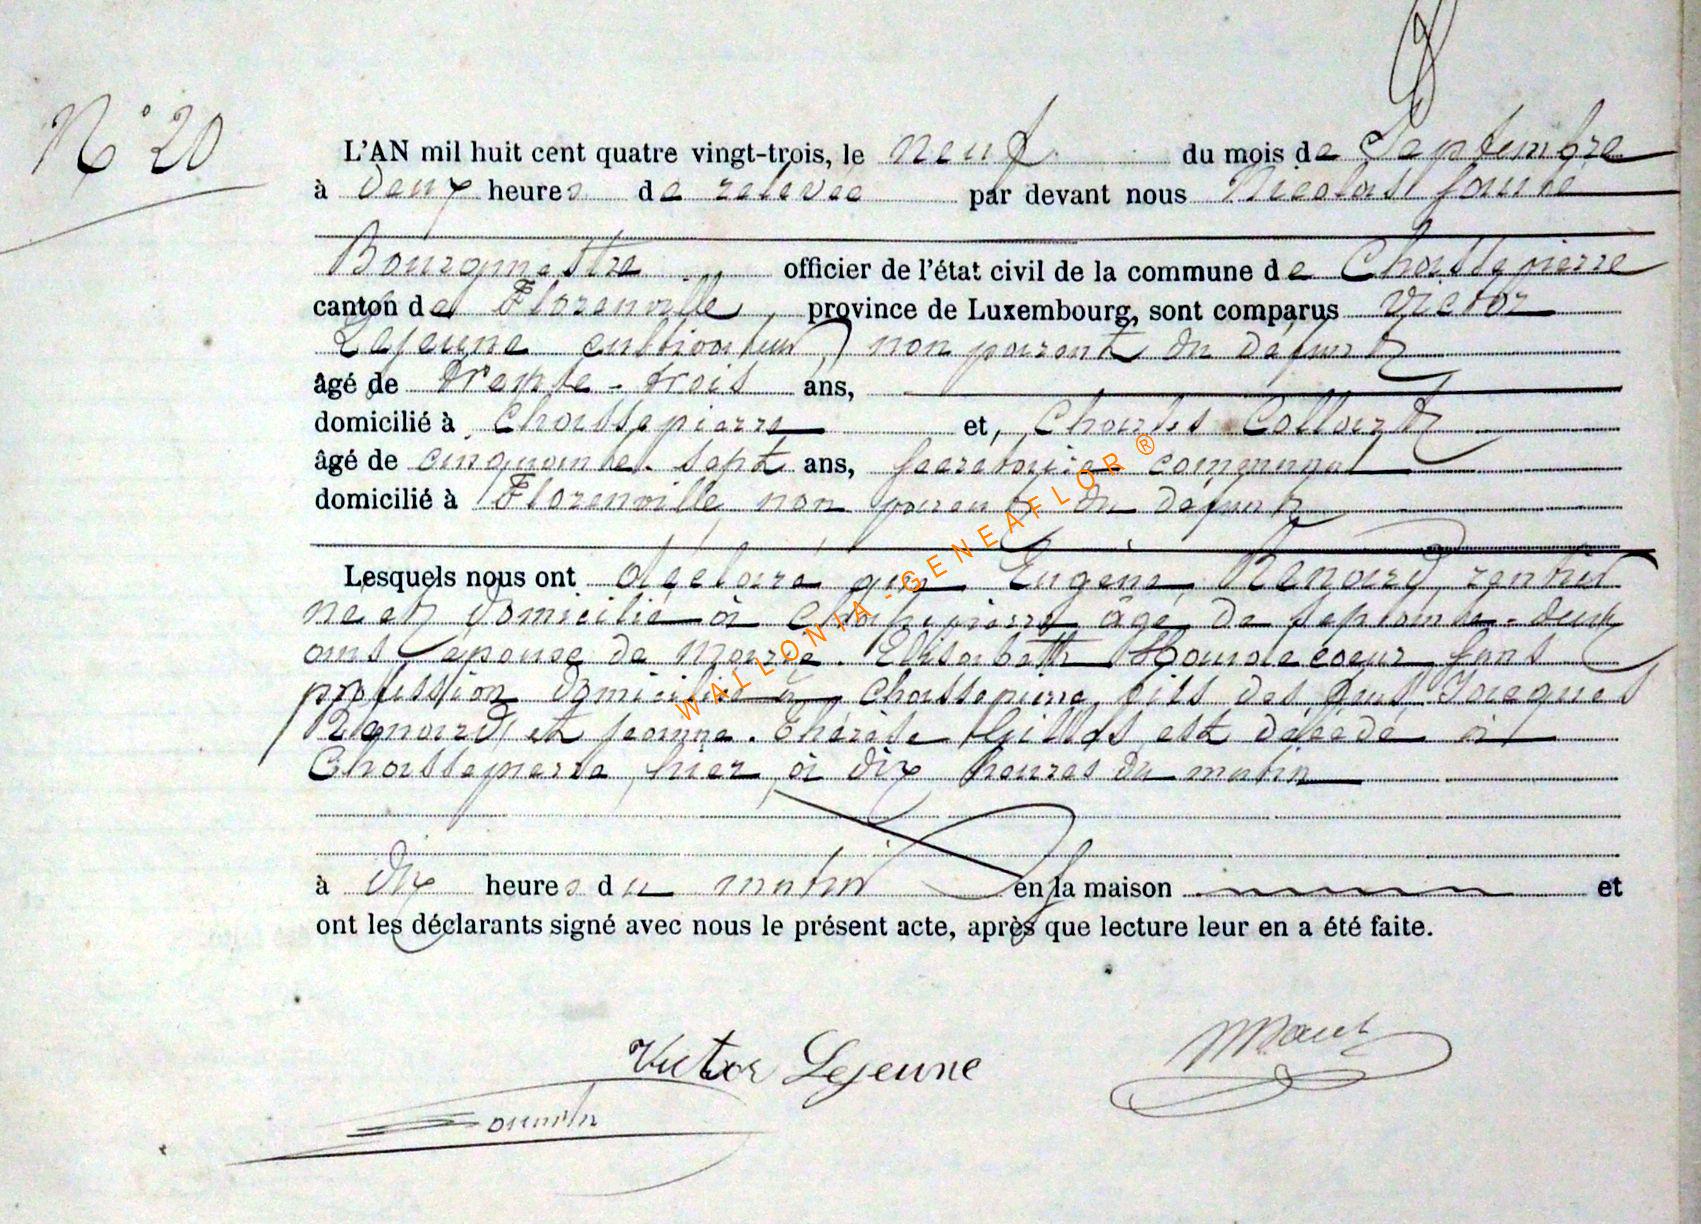 N° 20
L'AN mil huit cent quatre vingt-trois, le neuf du mois de Septembre
à deux heures de relevée par devant nous Nicolas
Bourgmestre officier de l'état civil de la commune de Chassepierre
canton de Florenville, province de Luxembourg, sont comparus Victor
Lejeune cultivateur, non parent du défunt
âgé de trente-trois ans,
domicilié à Chassepierre et, Charles Collard
âgé de cinquante-sept ans, secretaire communal
domicilié à Florenville non parent du défunt
Lesquels nous ont déclaré que Eugène Renard, rentier
né et domicilié à Chassepierre âgé de septante-deux
ans, époux de Marie. Elisabeth sans
profession domiciliée à Chassepierre, fils des feus Jacques
Renard, et Jeanne. Thérèse Gilles est décédé à
Chassepierre, hier, à dix heures du matin
à dix heures du matin en la maison et
ont les déclarants signé avec nous le présent acte, après que lecture leur en a été faite.
Victor Lejeune
WALLONIA-GENEAFLOR ®